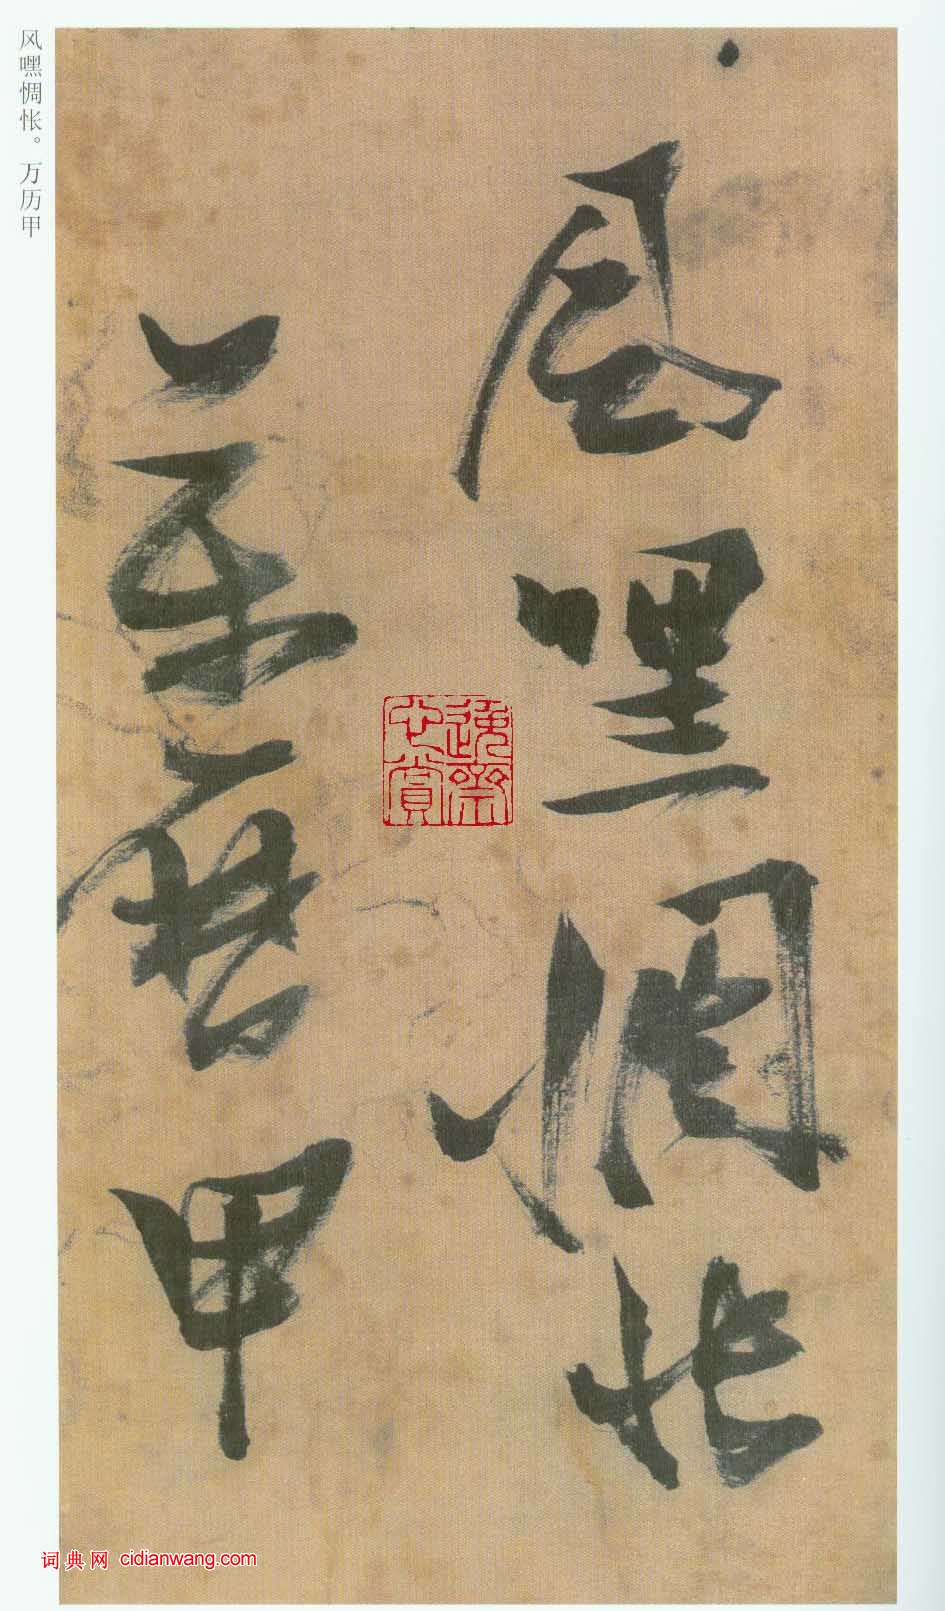 風嘿惆悵
萬曆甲
风嘿惆怅。万历甲
词典网 cidianwang.com